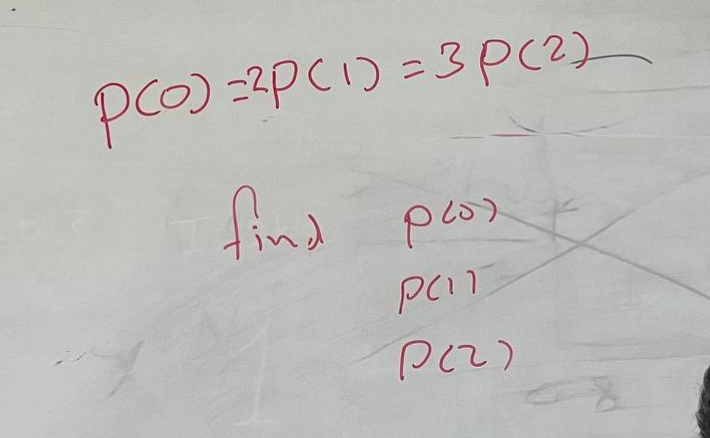 p(0)=2p(1)=3p(2)
find p(0)
p(1)
p(2)